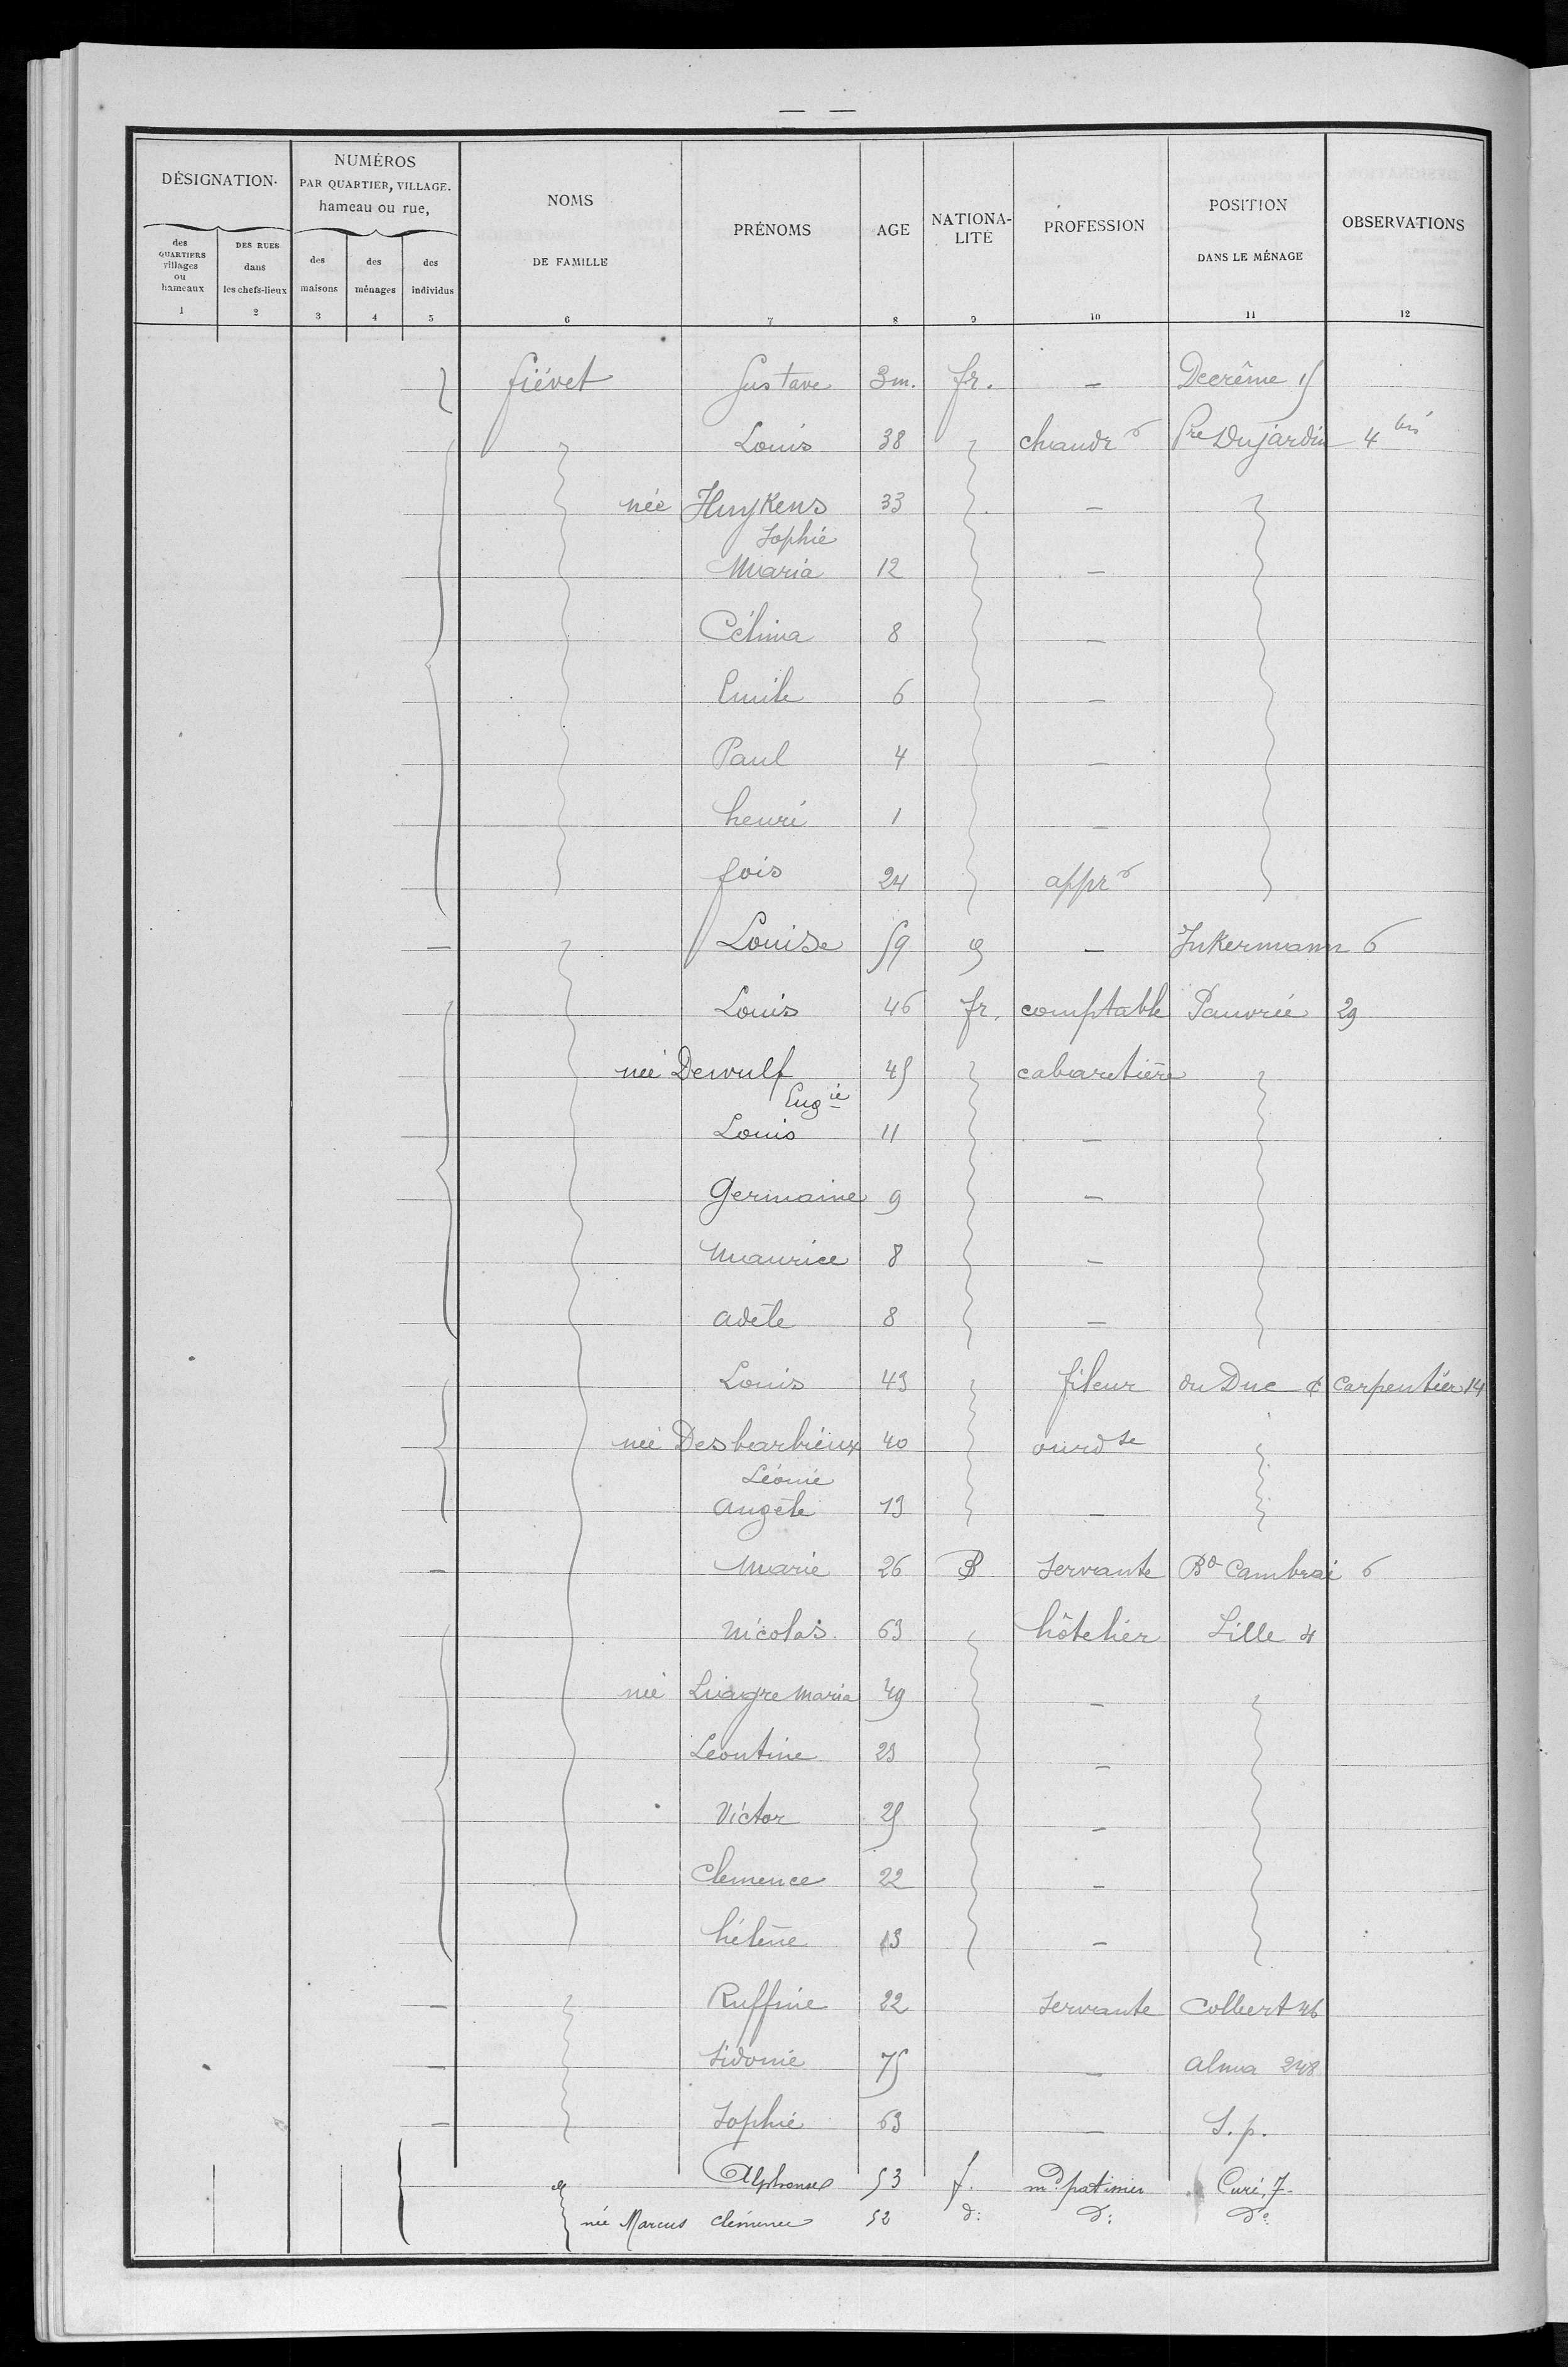 — —
DÉSIGNATION
NUMÉROS PAR QUARTIER, VILLAGE. hameau ou rue,
NOMS DE FAMILLE
PRÉNOMS
AGE
NATIONA-LITÉ
PROFESSION
POSITION DANS LE MÉNAGE
OBSERVATIONS
des QUARTIERS villages ou hameaux
DES RUES dans les chefs-lieux
des maisons
des ménages
des individus
1 2 3 4 5 6 7 8 9 10 11 12
fiévet Gustave 3m. fr. — Decrême 15
Louis 38 chaudr Pre Dujardin 4 bis
née Huykens 33 —
Sophie
Maria 12 —
Célina 8 —
Emile 6 —
Paul 4 —
henri 1 —
fois 24 appr
Louise 59 — Inkermann 6
Louis 46 fr. comptable Pauvrée 29
née Dewulf 45 cabaretière
Eugie
Louis 11 —
Germaine 9 —
Maurice 8 —
adèle 8 —
Louis 43 fileur du Duc c Carpentier 14
née Desbarbieux 40 ourdse
Léonie
Angèle 13 —
Marie 26 B Servante Bd Cambrai 6
Nicolas 63 hôtelier Lille 4
née Liagre Maria 49 —
Léontine 23 —
Victor 25 —
Clemence 22 —
hélène 13 —
Ruffine 22 Servante Colbert 46
Sidonie 75 — Alma 248
Sophie 63 — S. p.
Alphonse 53 f. md patissier Curé, 7
née Marcus Clémence 52 d: d: do